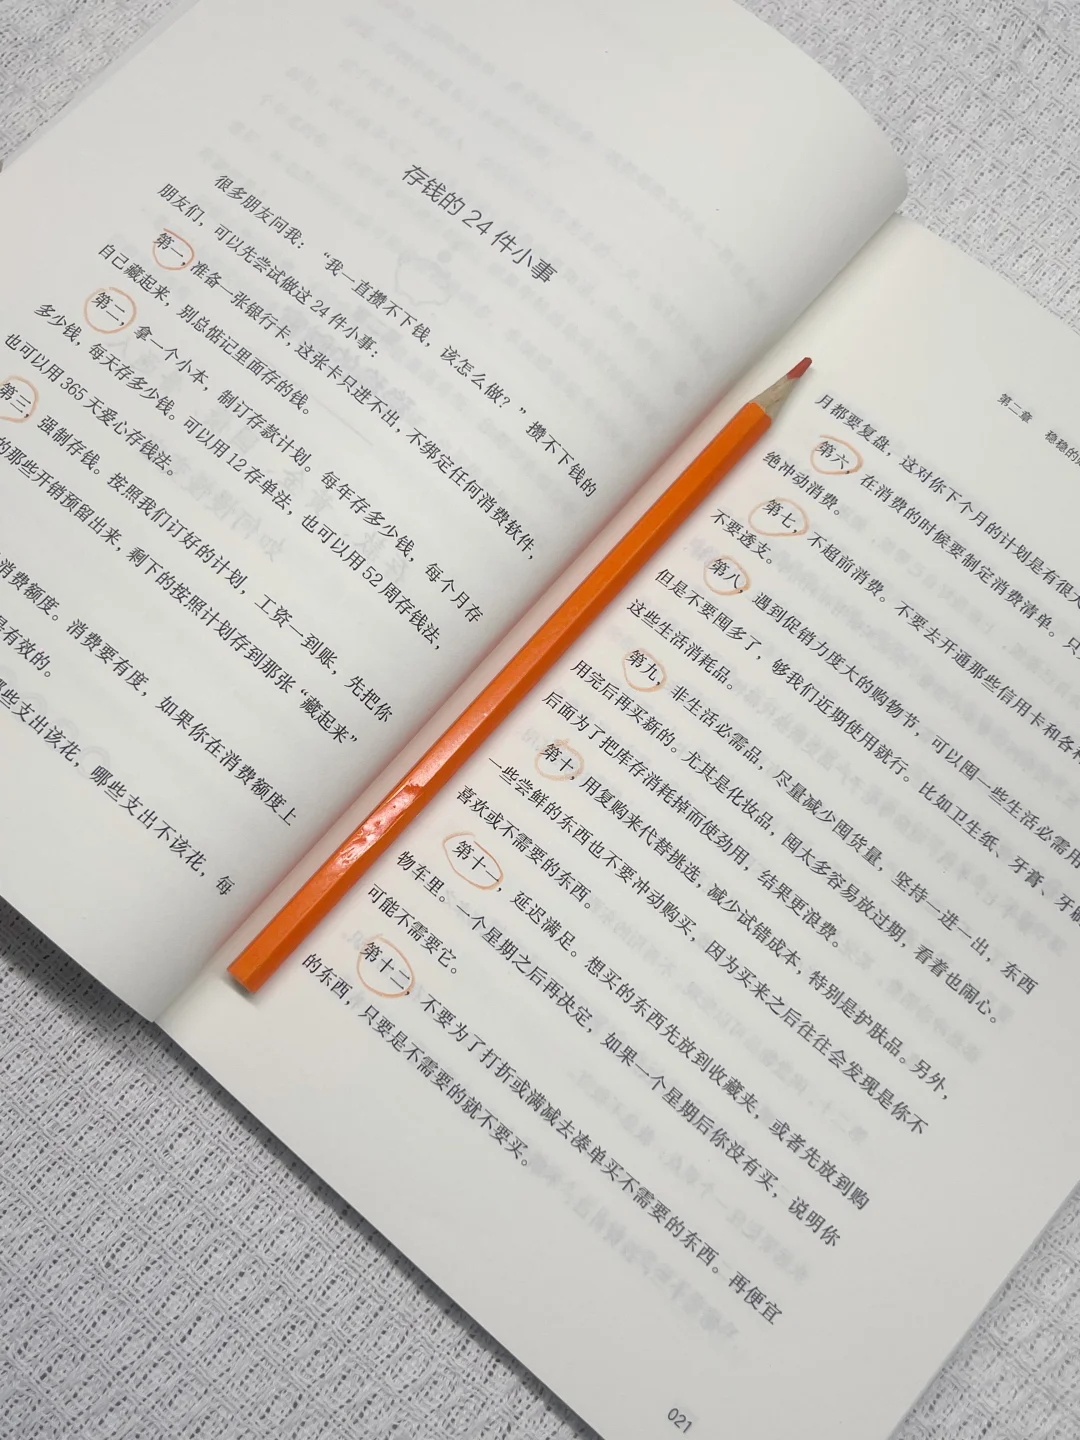 存钱的24件小事
很多朋友问我：“我一直攒不下钱，该怎么做？”攒不下钱的
朋友们，可以先尝试做这24件小事：
第一，准备一张银行卡，这张卡只进不出，不绑定任何消费软件，
自己藏起来，别总惦记里面存的钱。
第二，拿一个小本，制订存款计划。每年存多少钱，每个月存
多少钱，每天存多少钱。可以用12存单法，也可以用52周存钱法，
也可以用365天爱心存钱法。
第三，强制存钱。按照我们订好的计划，工资一到账，先把你
的那些开销预留出来，剩下的按照计划存到那张“藏起来”
消费额度。消费要有度，如果你在消费额度上
是有效的。
哪些支出该花，哪些支出不该花，每
第二章 稳稳的
月都要复盘，这对你下个月的计划是有很
第六，在消费的时候要制定消费清单。只
绝冲动消费。
第七，不超前消费。不要去开通那些信用卡和各
不要透支。
第八，遇到促销力度大的购物节，可以囤一些生活必需用
但是不要囤多了，够我们近期使用就行。比如卫生纸、牙膏、牙刷
这些生活消耗品。
第九，非生活必需品，尽量减少囤货量，坚持一进一出，东西
用完后再买新的。尤其是化妆品，囤太多容易放过期，看着也闹心。
后面为了把库存消耗掉而使劲用，结果更浪费。
第十，用复购来代替挑选，减少试错成本，特别是护肤品。另外，
一些尝鲜的东西也不要冲动购买，因为买来之后往往会发现是你不
喜欢或不需要的东西。
第十一，延迟满足。想买的东西先放到收藏夹，或者先放到购
物车里。一个星期之后再决定，如果一个星期后你没有买，说明你
可能不需要它。
第十二，不要为了打折或满减去凑单买不需要的东西。再便宜
的东西，只要是不需要的就不要买。
021